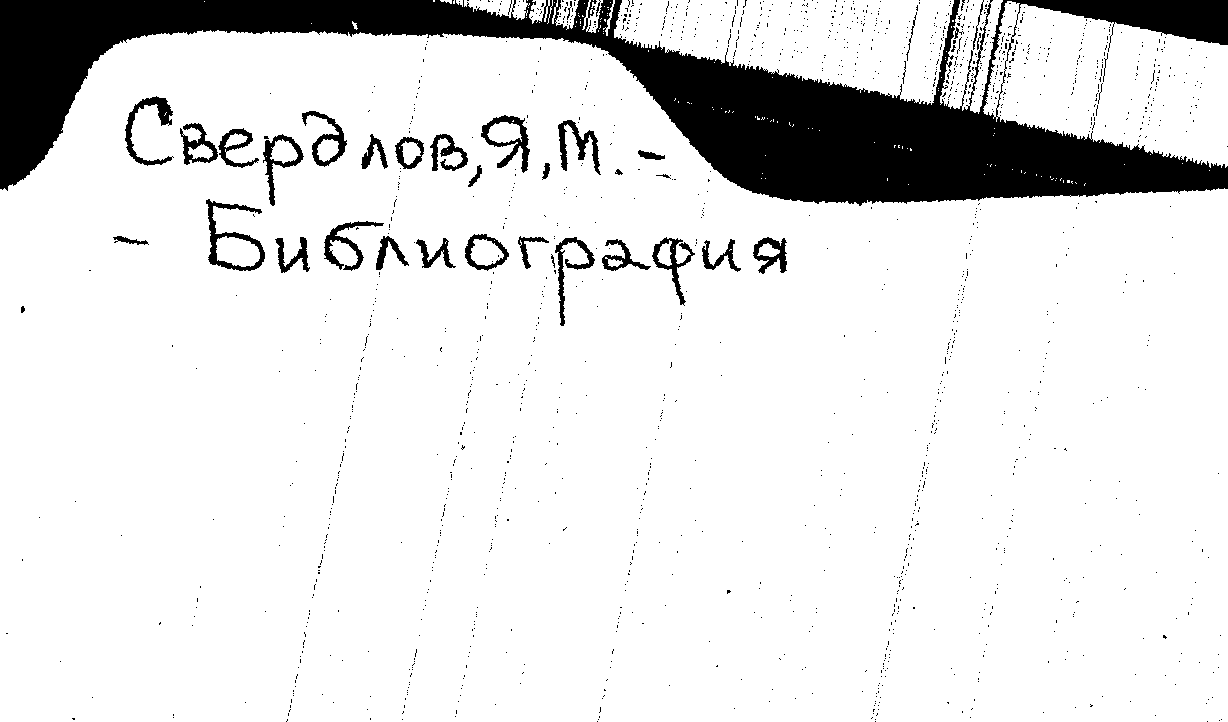 Свердлов, Я, М. -
- Библиография